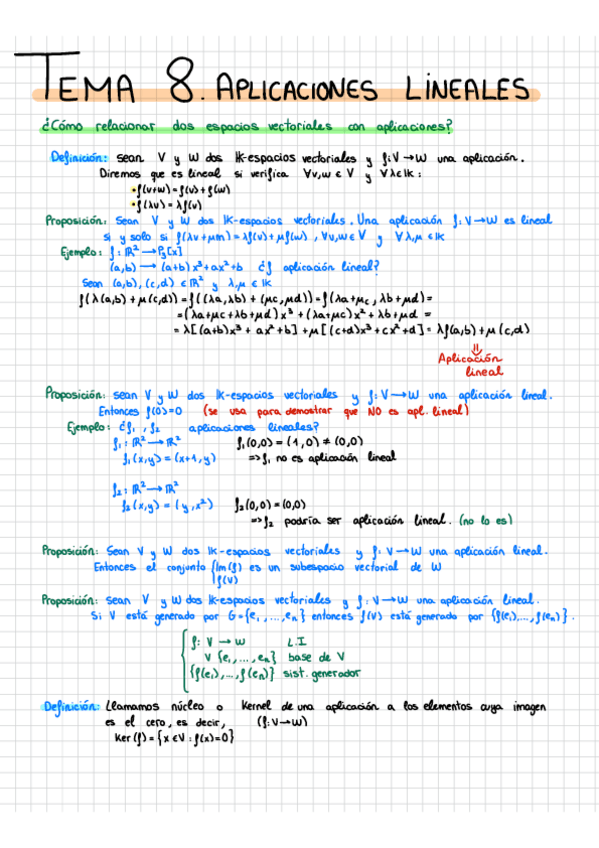 TEMA 8. APLICACIONES LINEALES
¿Cómo relacionar dos espacios vectoriales con aplicaciones?
Definición: sean V y W dos IK-espacios vectoriales y f: V → W una aplicación.
Diremos que es lineal si verifica ∀v,w ∈ V y ∀λ ∈ IK:
• f(v+w) = f(v) + f(w)
• f(λv) = λf(v)
Proposición: Sean V y W dos IK-espacios vectoriales. Una aplicación f: V → W es lineal
si y solo si f(λv+μm) = λf(v) + μf(w), ∀v,w ∈ V y ∀λ,μ ∈ IK
Ejemplo: f: IR² → P₃[x]
(a,b) → (a+b)x³ + ax² + b ¿f aplicación lineal?
Sean (a,b), (c,d) ∈ IR² y λ,μ ∈ IK
f(λ(a,b) + μ(c,d)) = f((λa, λb) + (μc, μd)) = f(λa+μc, λb+μd) =
= (λa+μc+λb+μd)x³ + (λa+μc)x² + λb+μd =
= λ[(a+b)x³ + ax² + b] + μ[(c+d)x³ + cx² + d] = λf(a,b) + μ(c,d)
⇓
Aplicación
lineal
Proposición: sean V y W dos IK-espacios vectoriales y f: V → W una aplicación lineal.
Entonces f(0) = 0 (se usa para demostrar que NO es apl. lineal)
Ejemplo: ¿f₁, f₂ aplicaciones lineales?
f₁: IR² → IR² f₁(0,0) = (1,0) ≠ (0,0)
f₁(x,y) = (x+1, y) => f₁ no es aplicación lineal
f₂: IR² → IR²
f₂(x,y) = (y, x²) f₂(0,0) = (0,0)
=> f₂ podría ser aplicación lineal. (no lo es)
Proposición: Sean V y W dos IK-espacios vectoriales y f: V → W una aplicación lineal.
Entonces el conjunto { Im(f) es un subespacio vectorial de W
f(V)
Proposición: sean V y W dos IK-espacios vectoriales y f: V → W una aplicación lineal.
Si V está generado por G = {e₁, ..., eₙ} entonces f(V) está generado por {f(e₁), ..., f(eₙ)}.
f: V → W L.I
V {e₁, ..., eₙ} base de V
{f(e₁), ..., f(eₙ)} sist. generador
Definición: Llamamos núcleo o Kernel de una aplicación a los elementos cuya imagen
es el cero, es decir, (f: V → W)
Ker(f) = {x ∈ V : f(x) = 0}